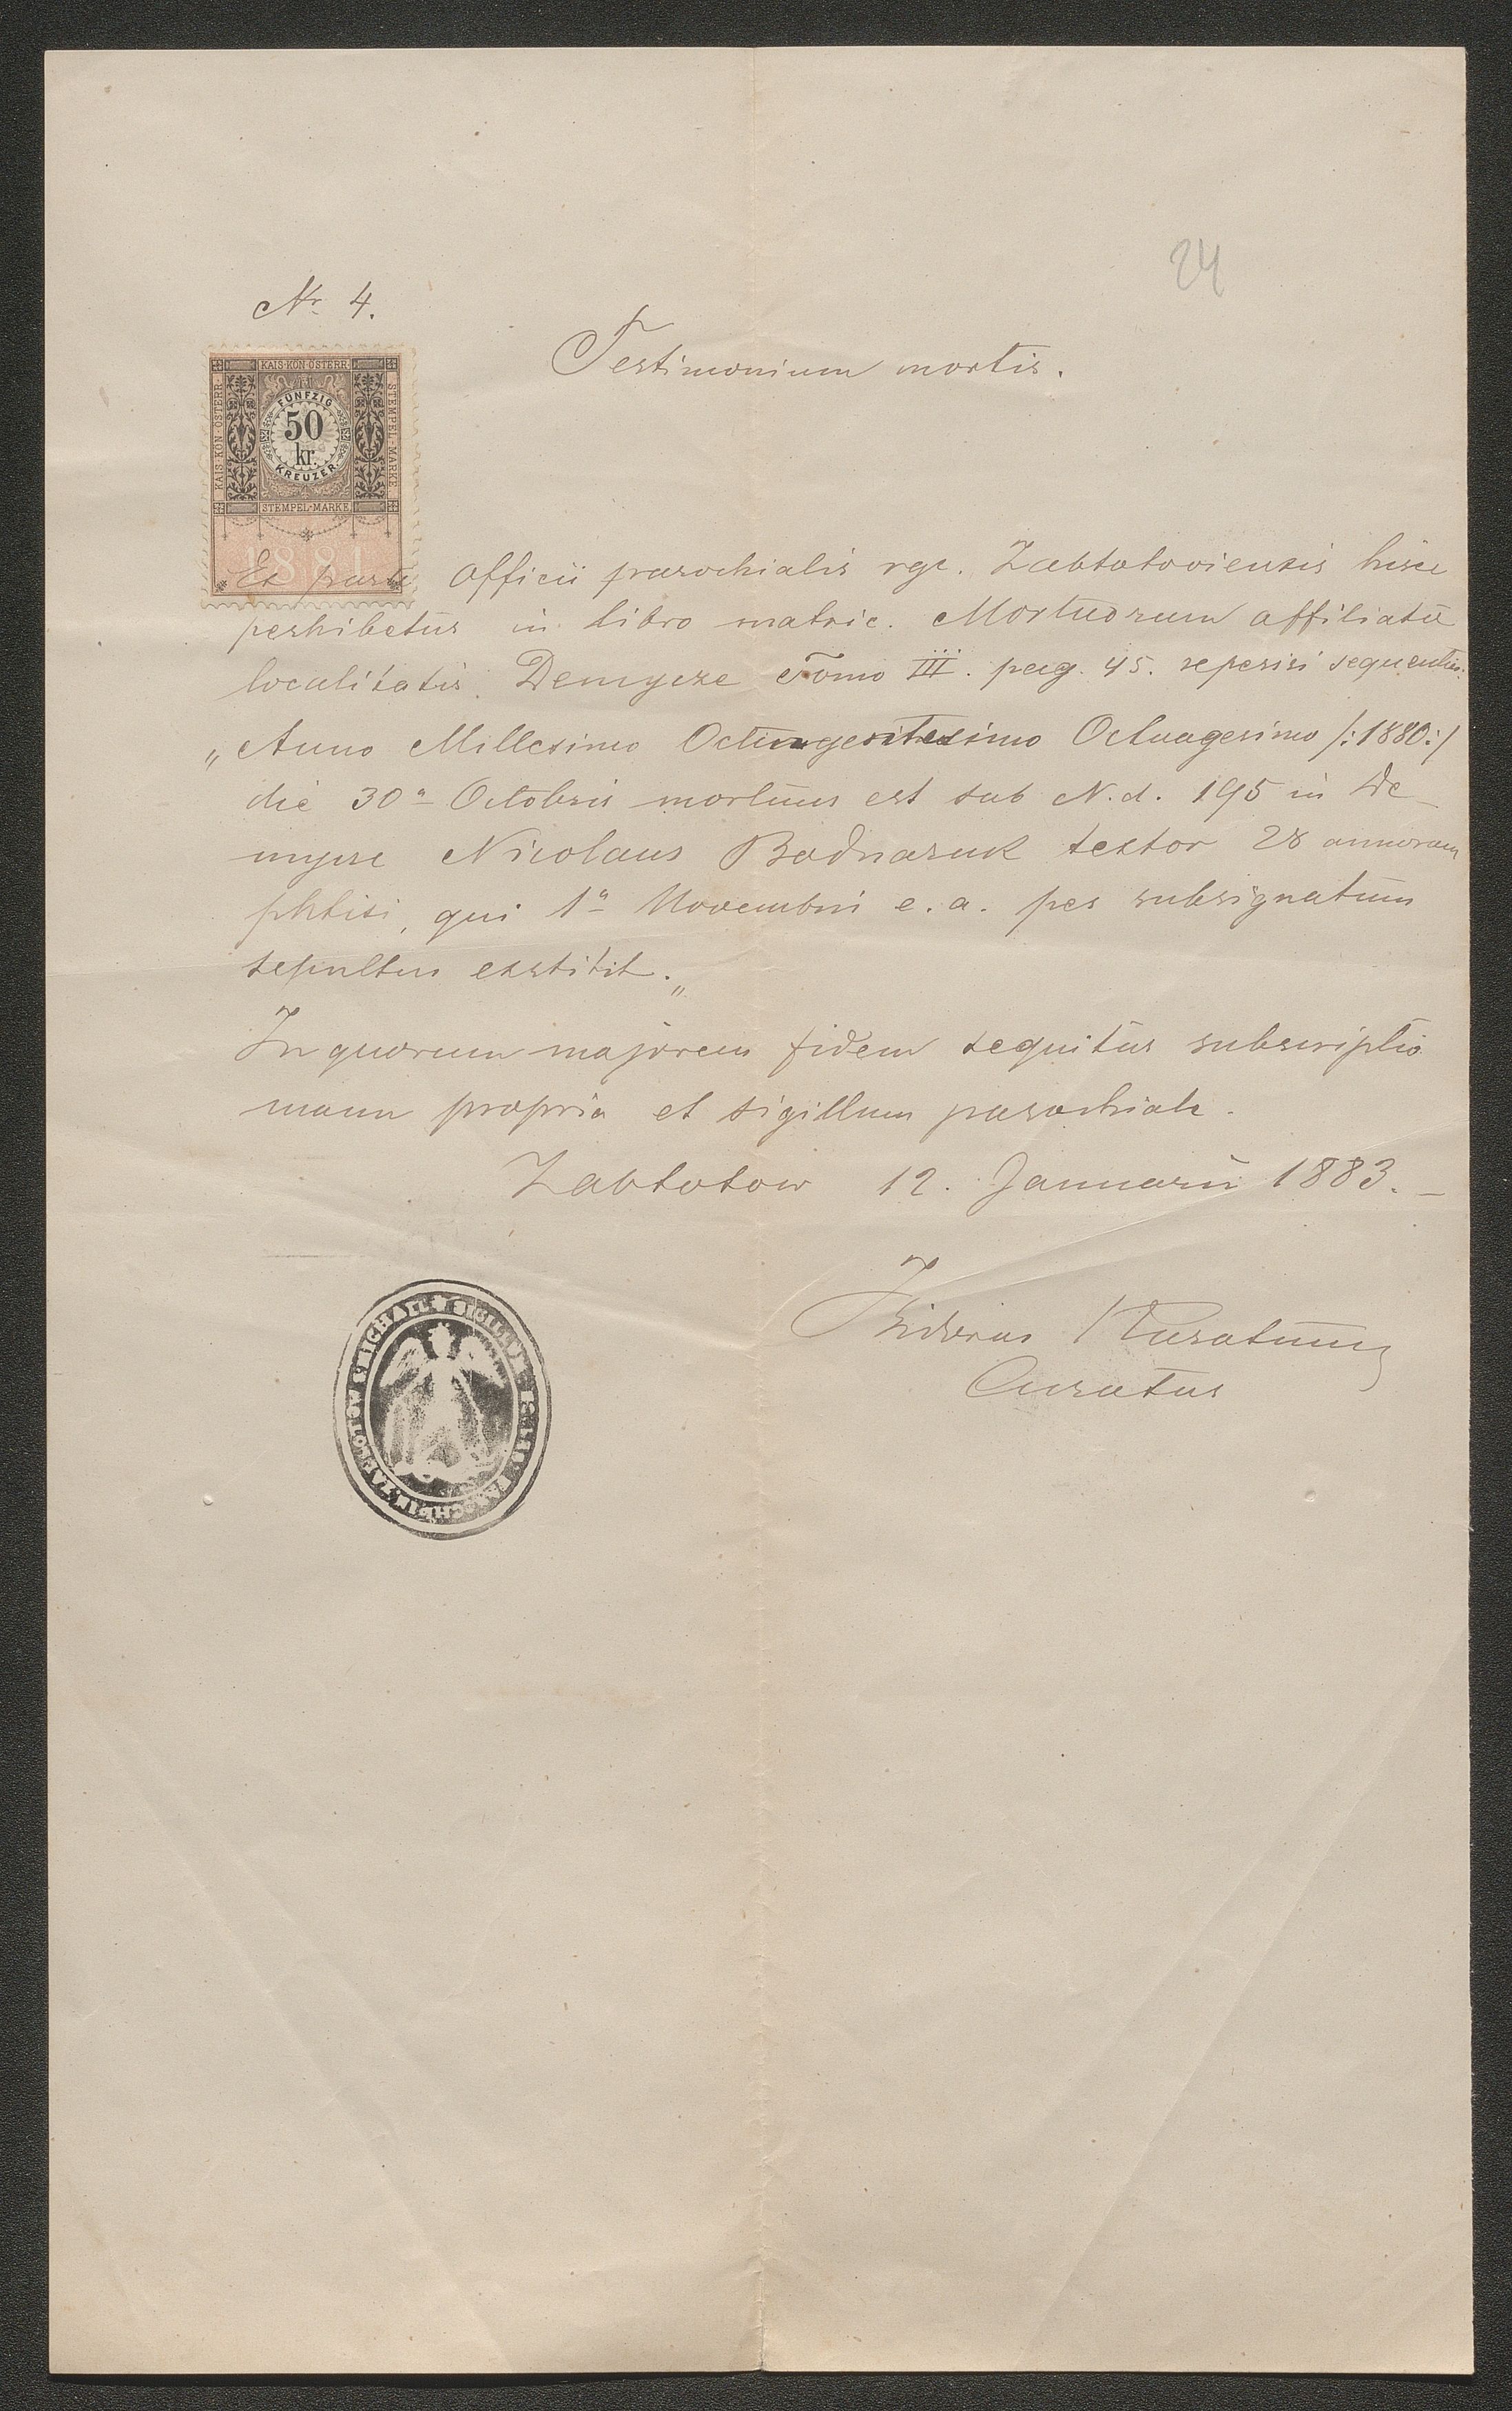 24
Nr. 4.
Testimonium mortis.
KAIS. KÖN. ÖSTERR.
KAIS. KÖN. ÖSTERR. STEMPEL-MARKE
FÜNFZIG
50
kr.
KREUZER
STEMPEL-MARKE
1881
Ex parte officii parochialis rgc. Zabłotoviensis hisce
perhibetur in libro matric. Mortuorum affiliatae
localitatis Demycze Tomo III. pag. 45. reperiri sequentia:
„Anno Millesimo Octingentesimo Octuagesimo /:1880:/
die 30a Octobris mortuus est sub N.d. 195 in De-
mycze Nicolaus Bodnaruk textor 28 annorum
phtisi, qui 1a Novembris e.a. per subsignatum
sepultus exstitit.„
In quorum majorem fidem sequitur subscriptio
manu propria et sigillum parochiale.
Zabłotow 12. Januarii 1883.–
Curatus
S. MICHAEL SIGILLUM